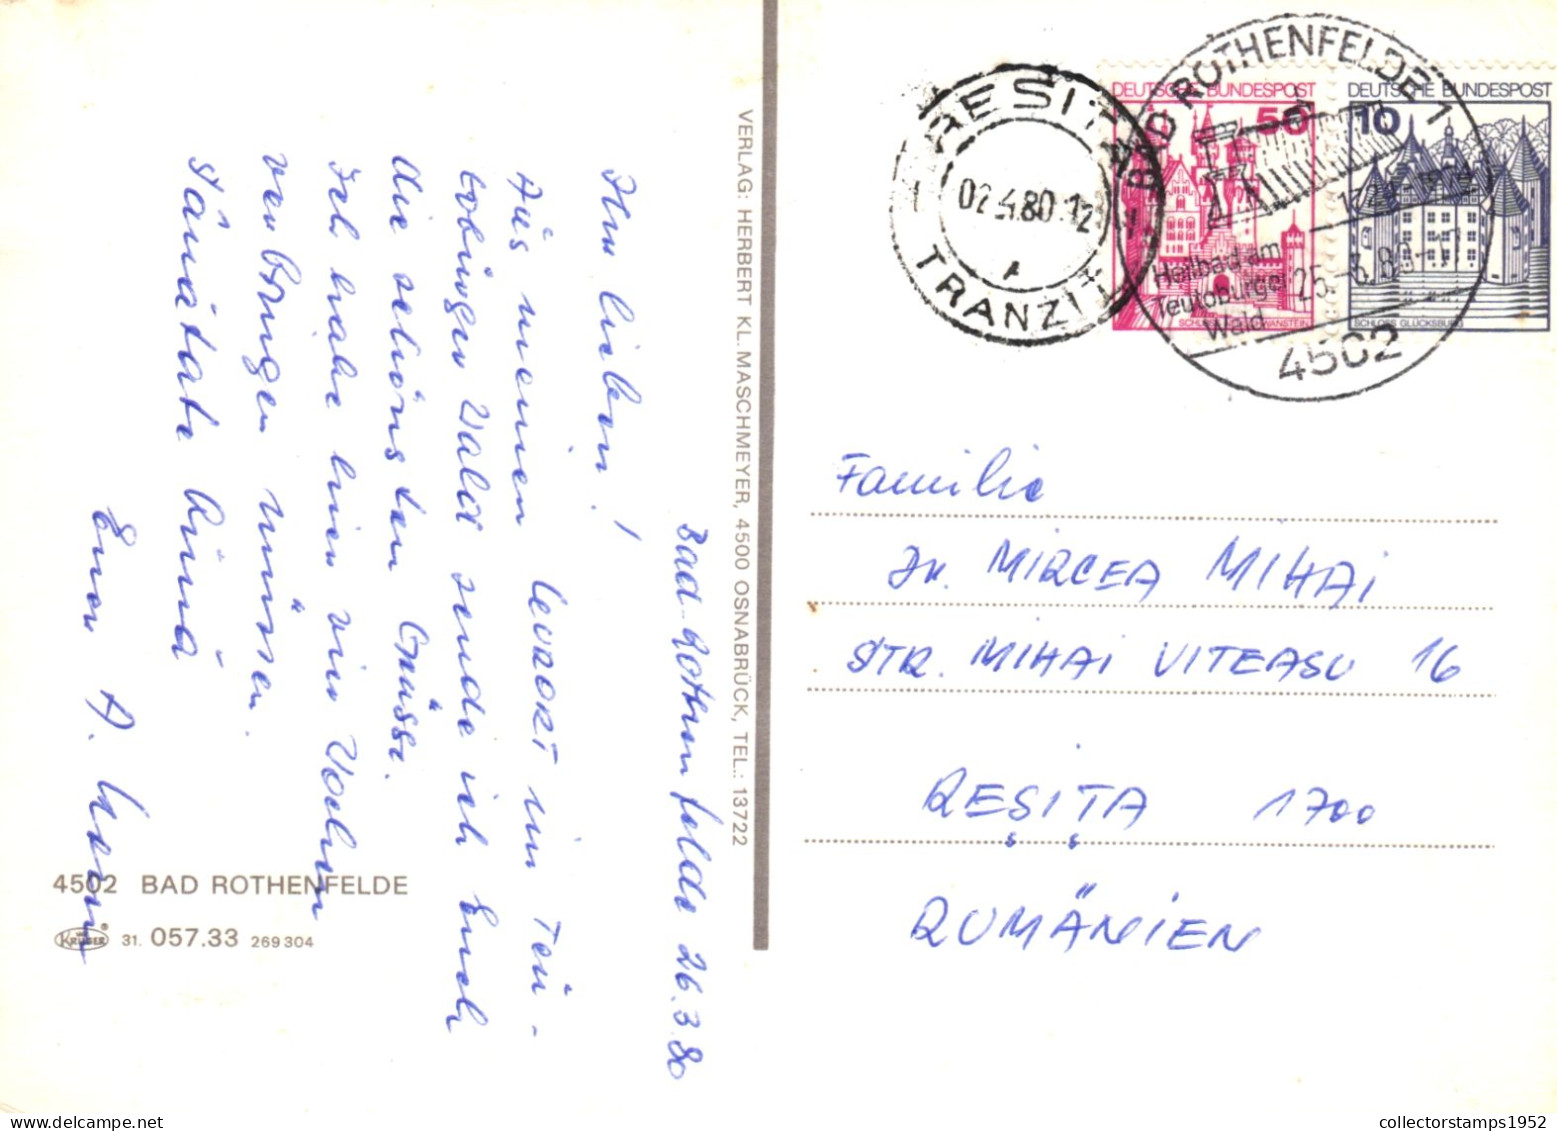 Bad-Rothenfelde 26.3.80
Ihr lieben!
Aus meinem Kurort im Teu-
toburger Wald sende ich Euch
die schönsten Grüsse.
Ich habe hier vier Wochen
verbringen müssen.
Sănătate bună
Euer A.
4502 BAD ROTHENFELDE
KRÜGER
31. 057.33 269 304
VERLAG: HERBERT KL. MASCHMEYER, 4500 OSNABRÜCK, TEL.: 13722
RESITA
02.4.80.12
TRANZIT
DEUTSCHE BUNDESPOST
50
DEUTSCHE BUNDESPOST
10
SCHLOSS GLÜCKSBURG
BAD ROTHENFELDE 1
Heilbad am
Teutoburger
Wald
25.-3.80
4502
Familie
MIRCEA MIHAI
STR. MIHAI VITEASU 16
REȘIȚA 1700
RUMÄNIEN
collectorstamps1952